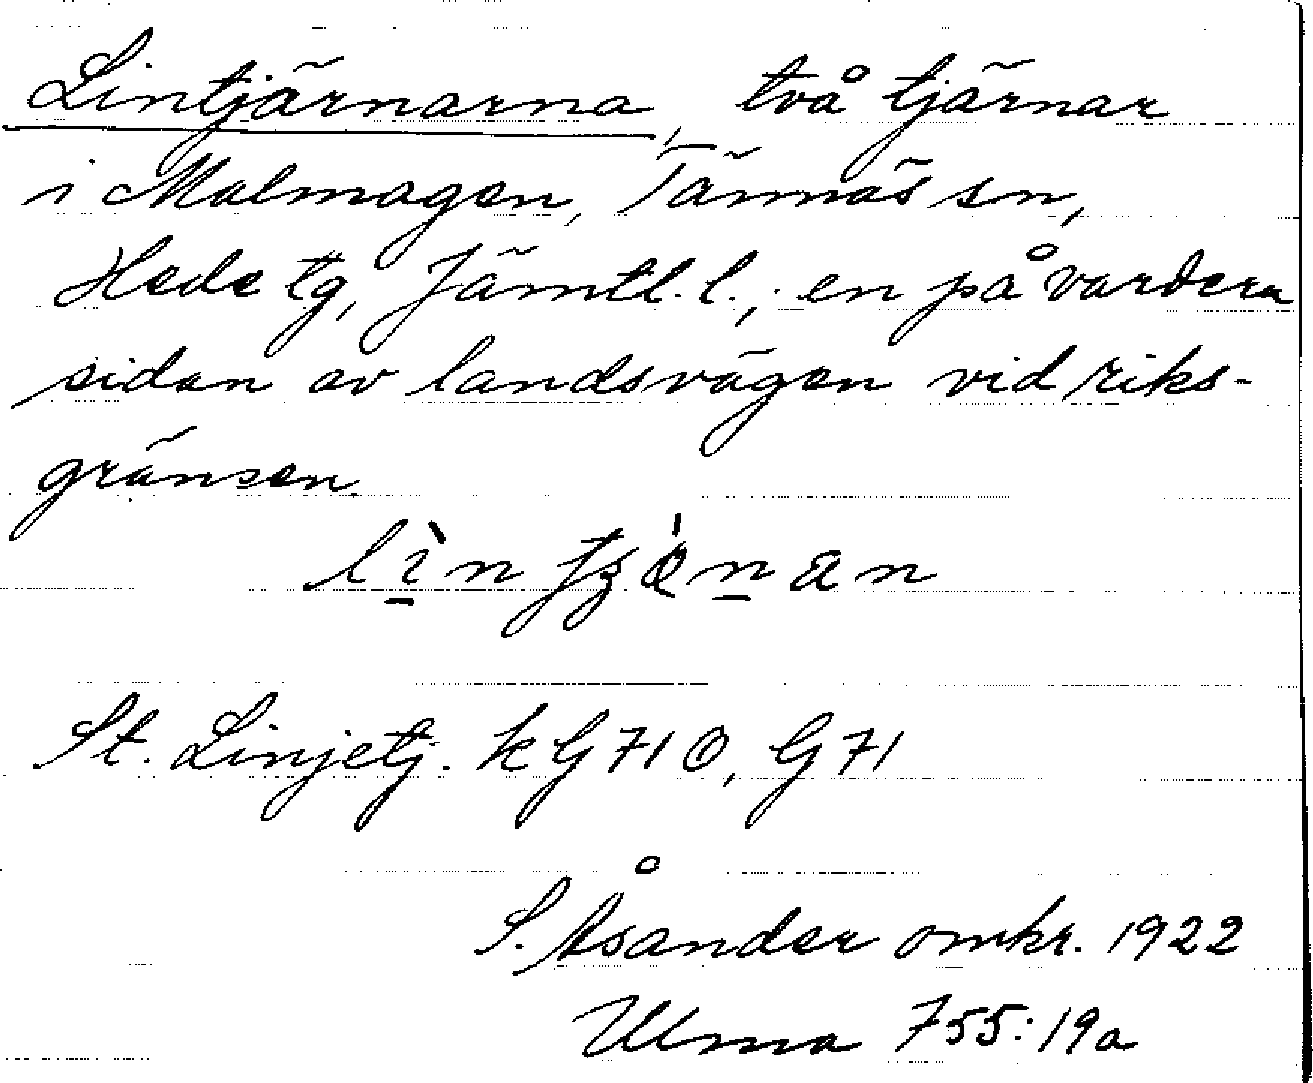 Lintjärnarna, två tjärnar
i Malmagen, Tännäs sn,
Hede tg, Jämtl. l.; en på vardera
sidan av landsvägen vid riks-
gränsen.
St. Linjetj. k G 71 O, G 71
S. Åsander omkr. 1922
Ulma 755:19a